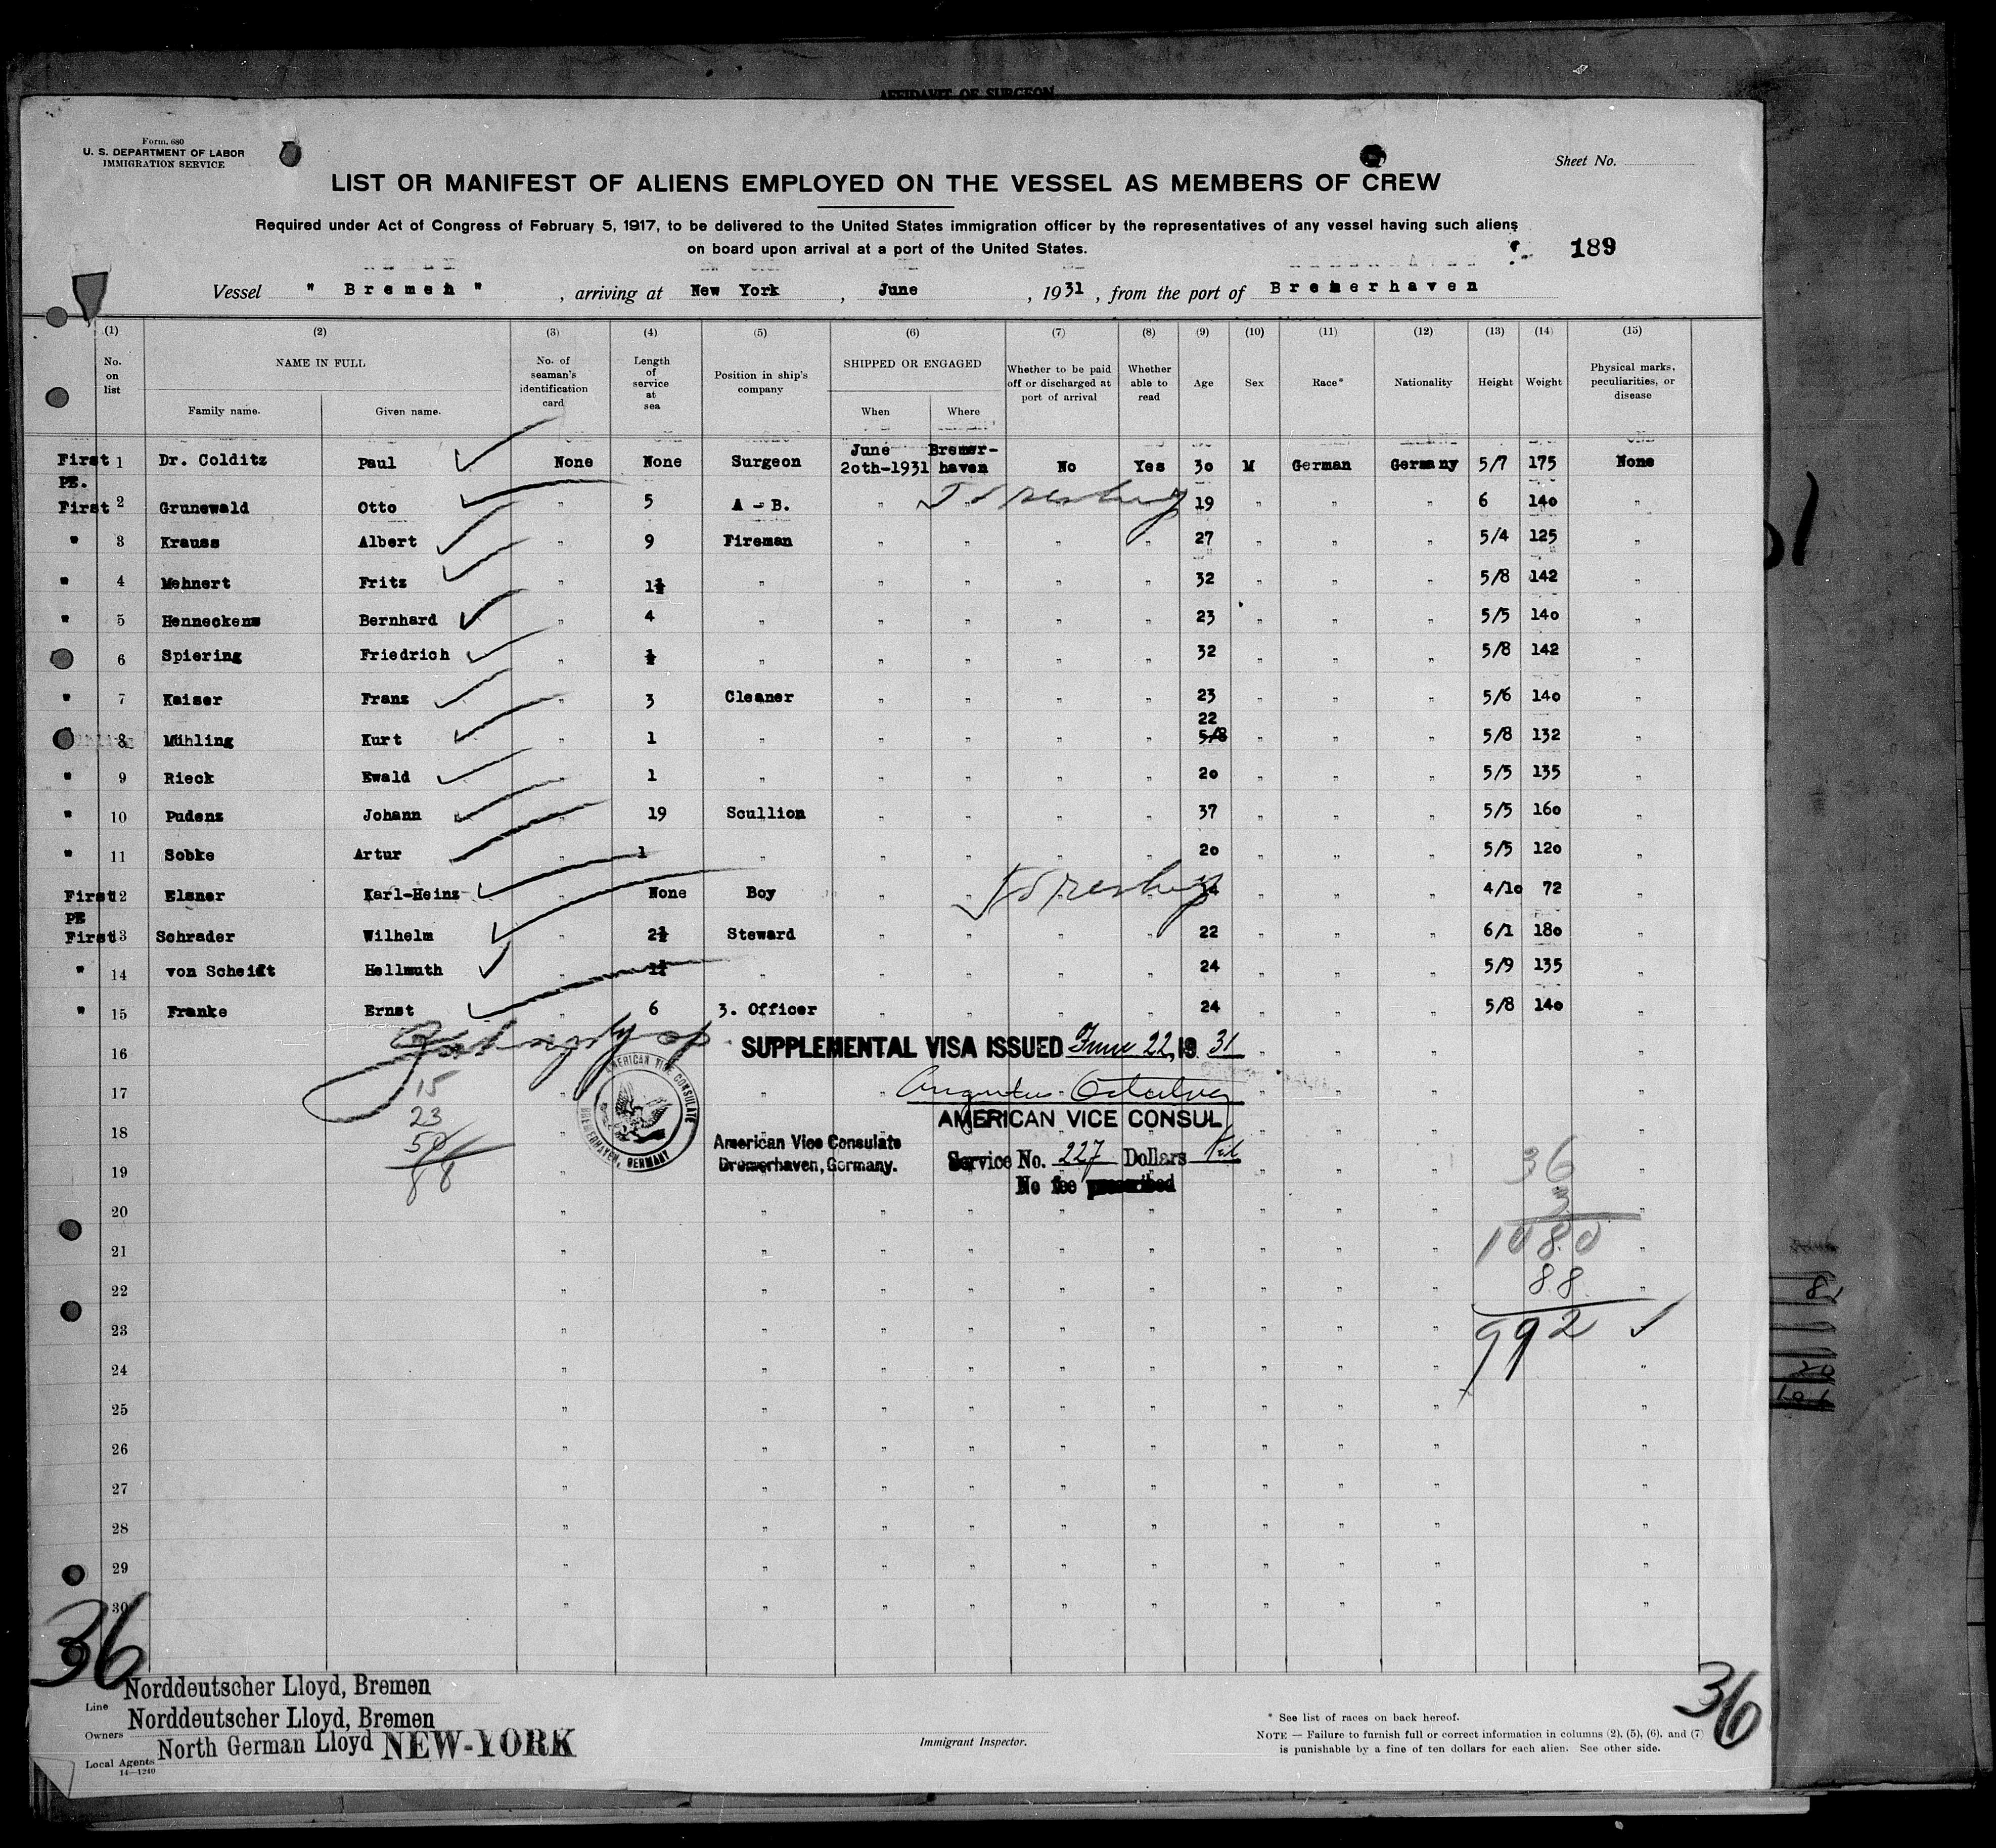 AFFIDAVIT OF SURGEON
Form 680
U. S. DEPARTMENT OF LABOR
IMMIGRATION SERVICE
Sheet No.
LIST OR MANIFEST OF ALIENS EMPLOYED ON THE VESSEL AS MEMBERS OF CREW
Required under Act of Congress of February 5, 1917, to be delivered to the United States immigration officer by the representatives of any vessel having such aliens
on board upon arrival at a port of the United States.
189
Vessel " Bremen " , arriving at New York , June , 1931 , from the port of Bremerhaven
(1) (2) (3) (4) (5) (6) (7) (8) (9) (10) (11) (12) (13) (14) (15)
No. on list NAME IN FULL Family name. Given name. No. of seaman's identification card Length of service at sea Position in ship's company SHIPPED OR ENGAGED When Where Whether to be paid off or discharged at port of arrival Whether able to read Age Sex Race* Nationality Height Weight Physical marks, peculiarities, or disease
First 1 Dr. Colditz Paul None None Surgeon June 20th-1931 Bremer-haven No Yes 30 M German Germany 5/7 175 None
PE.
First 2 Grunewald Otto " 5 A - B. " " " " 19 " " " 6 140 "
" 3 Krauss Albert " 9 Fireman " " " " 27 " " " 5/4 125 "
" 4 Mehnert Fritz " 1½ " " " " " 32 " " " 5/8 142 "
" 5 Henneckens Bernhard " 4 " " " " " 23 " " " 5/5 140 "
6 Spiering Friedrich " ½ " " " " " 32 " " " 5/8 142 "
" 7 Kaiser Franz " 3 Cleaner " " " " 23 " " " 5/6 140 "
8 Mühling Kurt " 1 " " " " " 22 5/8 " " " 5/8 132 "
" 9 Rieck Ewald " 1 " " " " " 20 " " " 5/5 135 "
" 10 Pudenz Johann " 19 Scullion " " " " 37 " " " 5/5 160 "
" 11 Sobke Artur " 1 " " " " " 20 " " " 5/5 120 "
First 12 Elsner Karl-Heinz " None Boy " " " " " " " 4/10 72 "
PE
First 13 Schrader Wilhelm " 2½ Steward " " " " 22 " " " 6/1 180 "
" 14 von Scheidt Hellmuth " 1½ " " " " " 24 " " " 5/9 135 "
" 15 Franke Ernst " 6 3. Officer " " " " 24 " " " 5/8 140 "
16 SUPPLEMENTAL VISA ISSUED June 22, 19 31
17 15
23
AMERICAN VICE CONSUL
18 50
AMERICAN VICE CONSULATE
BREMERHAVEN, GERMANY
American Vice Consulate
Bremerhaven, Germany.
Service No. 227 Dollars Nil
No fee prescribed
19 88
36
3
20
1080
21
88
22
992
23
24
25
26
27
28
29
30
36
36
Line Norddeutscher Lloyd, Bremen
Owners Norddeutscher Lloyd, Bremen
Local Agents North German Lloyd NEW-YORK
14—1240
Immigrant Inspector.
* See list of races on back hereof.
NOTE — Failure to furnish full or correct information in columns (2), (5), (6), and (7)
is punishable by a fine of ten dollars for each alien. See other side.